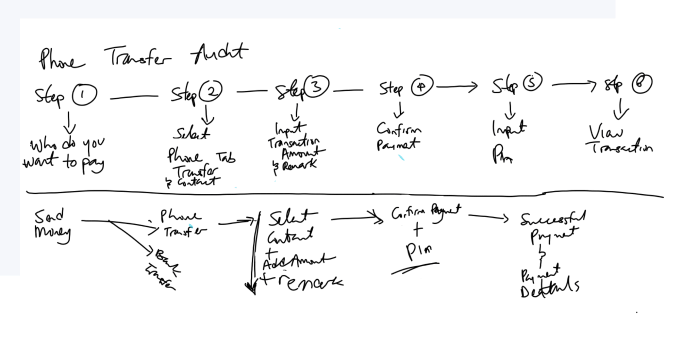 Phone Transfer Audit
Step 1 Step 2 Step 3 Step 4 Step 5 Step 6
Who do you
want to pay
Select
Phone Tab
Transfer
& Contact
Input
Transaction
Amount
& Remark
Confirm
Payment
Input
Pin
View
Transaction
Send
Money
Phone
Transfer
Bank
Transfer
Select
Contact
+
Add Amount
+ remark
Confirm Payment
+
Pin
Successful
Payment
Payment
Details